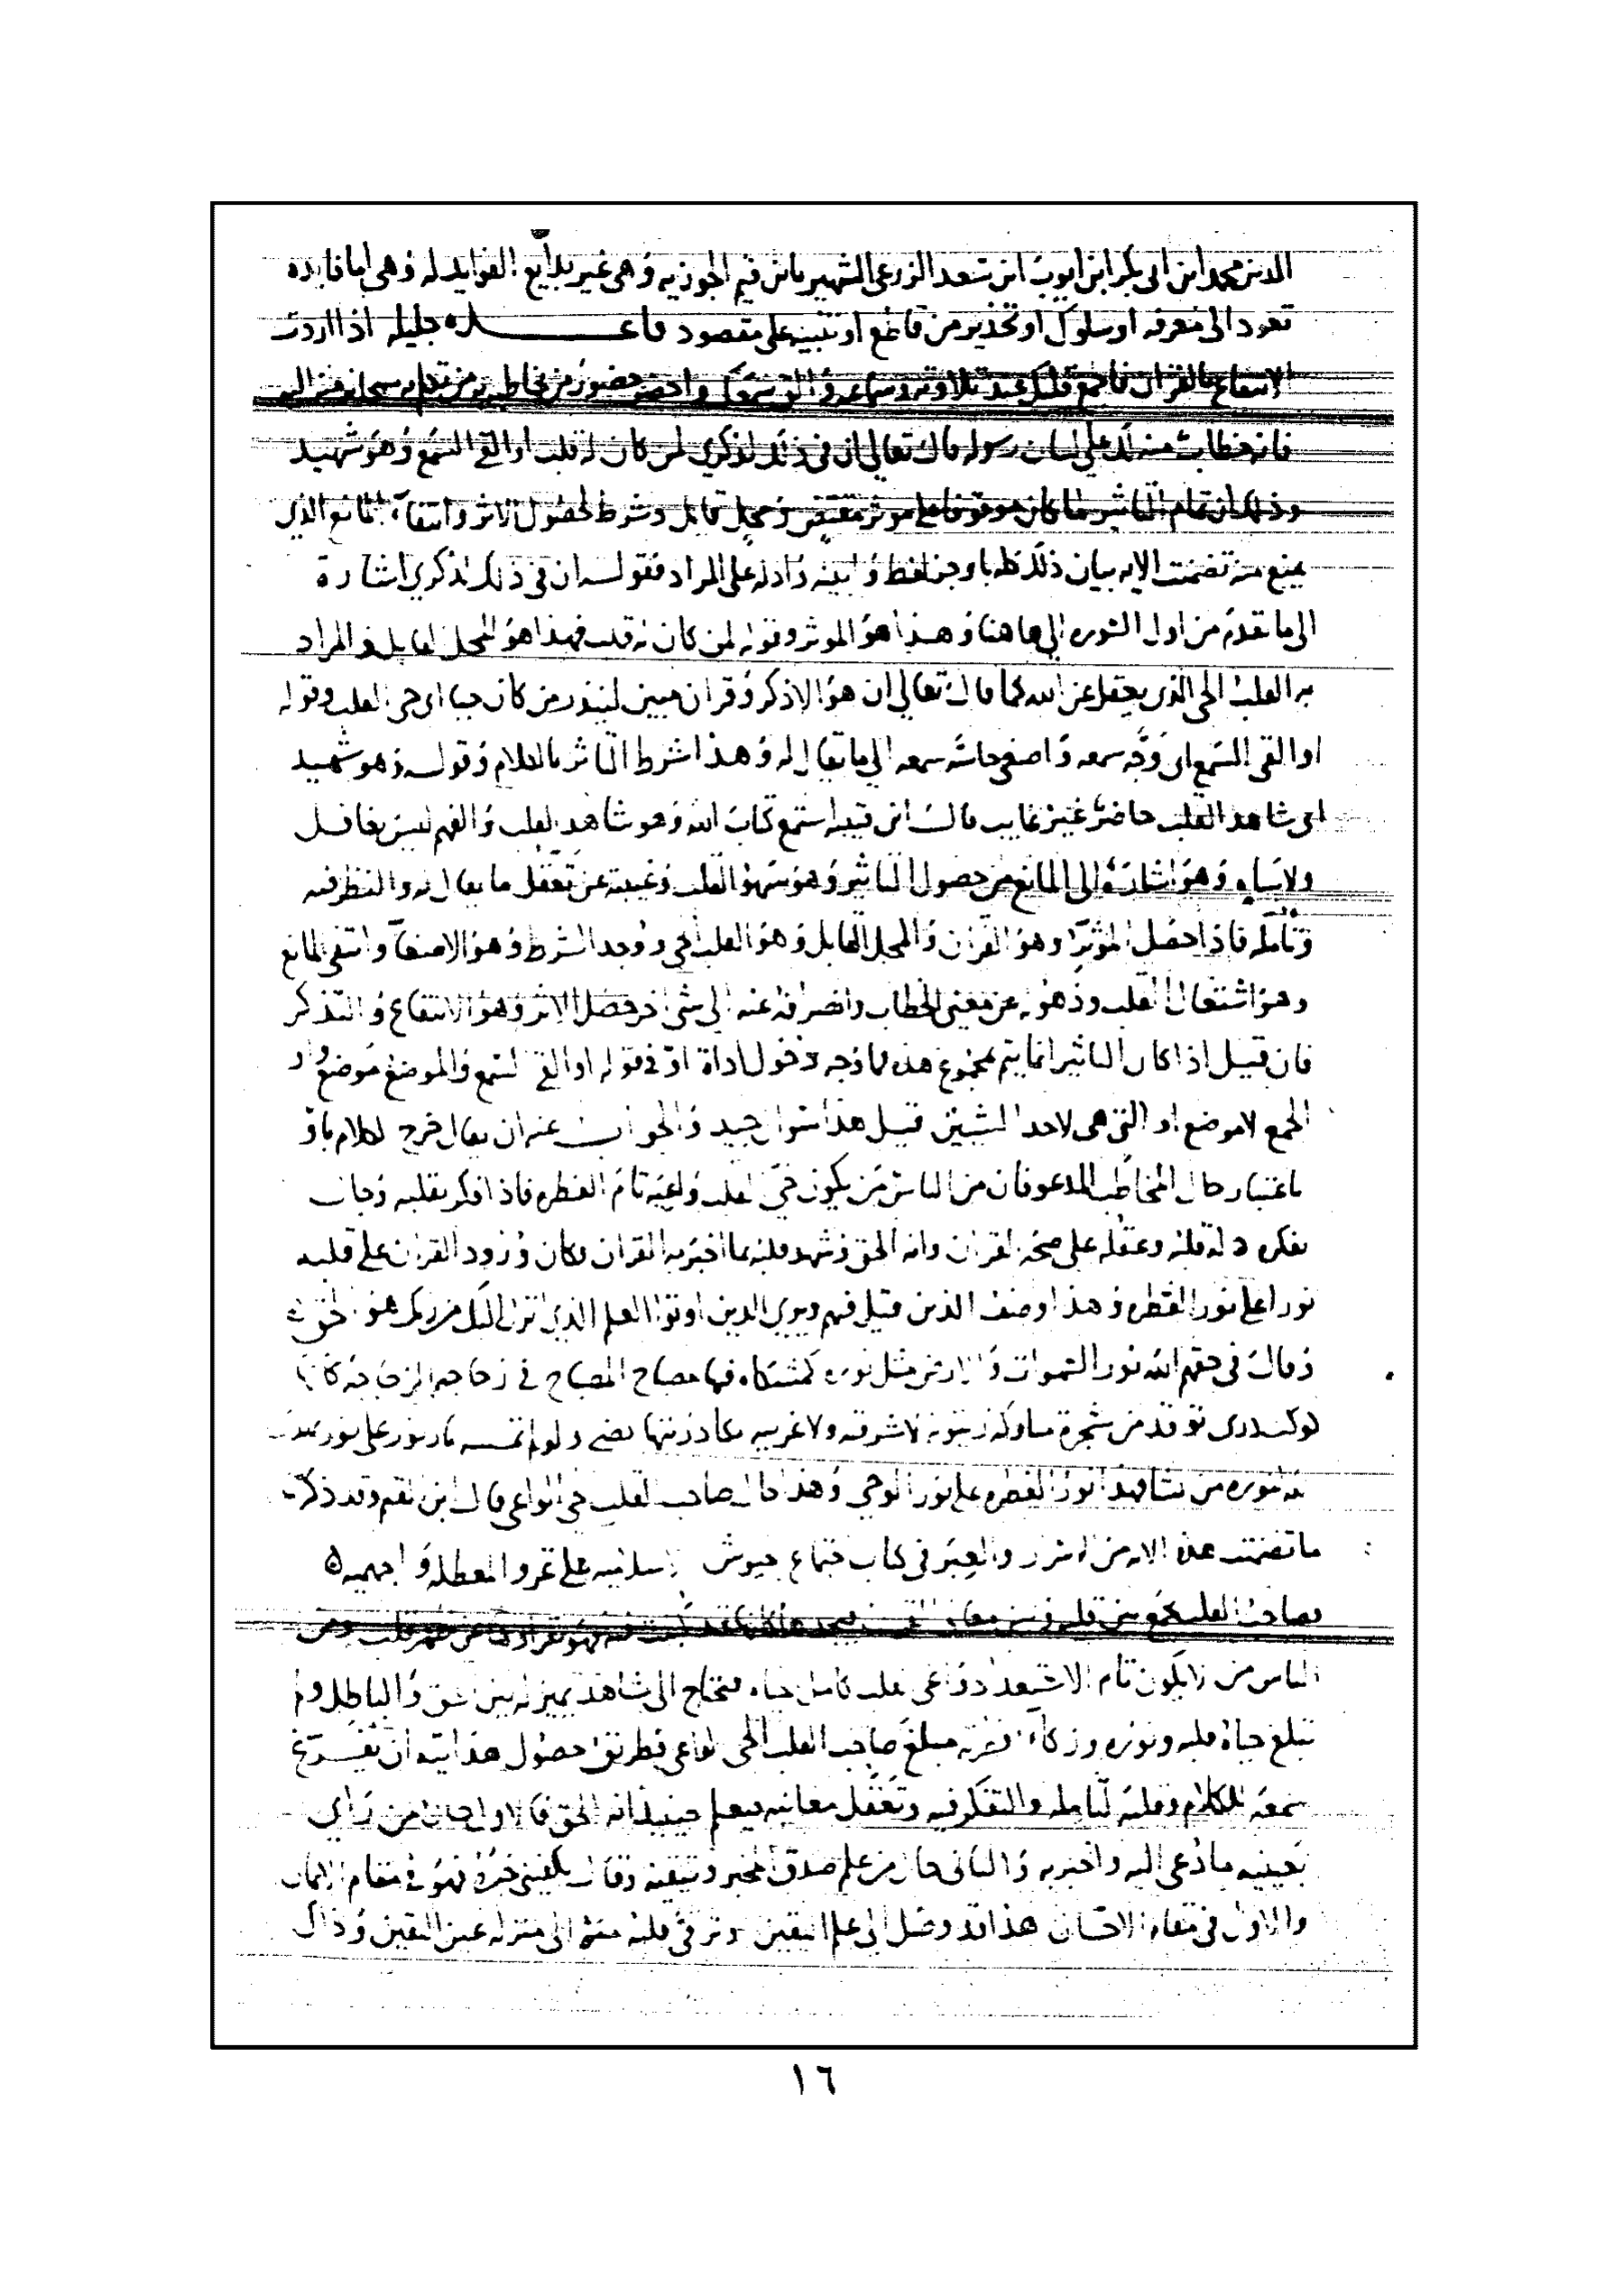 الدين محمد ابن ابى بكر ابن ايوب ابن سعد الزرعى الشهير بابن قيم الجوزيه وهى غير بدايع الفوايد له وهى اما فايده
تعود الى معرفه او سلوك او تحذير من قاطع او تنبيه على مقصود قاعده جليله اذا اردت
الانتفاع بالقران فاجمع قلبك عند تلاوته وسماعه والق سمعك واحضر حضور من يخاطبه به من تكلم به سبحانه منه اليه
فانه خطاب منه لك على لسان رسوله قال تعالى ان فى ذلك لذكرى لمن كان له قلب او القى السمع وهو شهيد
وذلك ان تمام التاثير لما كان موقوفا على موثر مقتض ومحل قابل وشرط لحصول الاثر وانتفاء المانع الذى
يمنع منه تضمنت الايه بيان ذلك كله باوجز لفظ وابينه وادله على المراد فقوله ان فى ذلك لذكرى اشارة
الى ما تقدم من اول السوره الى هاهنا وهذا هو الموثر وقوله لمن كان له قلب فهذا هو المحل القابل والمراد
به القلب الحى الذى يعقل عن الله كما قال تعالى ان هو الا ذكر وقران مبين لينذر من كان حيا اى حى القلب وقوله
او القى السمع اى وجه سمعه واصغى حاسة سمعه الى ما يقال له وهذا شرط التاثر بالكلام وقوله وهو شهيد
اى شاهد القلب حاضر غير غايب قال ابن قتيبه استمع كتاب الله وهو شاهد القلب والفهم ليس بغافل
ولا ساه وهو اشارة الى المانع من حصول التاثير وهو سهو القلب وغيبته عن تعقل ما يقال له والنظر فيه
وتامله فاذا حصل الموثر وهو القران والمحل القابل وهو القلب الحى ووجد الشرط وهو الاصغا وانتفى المانع
وهو اشتغال القلب وذهوله عن معنى الخطاب وانصرافه عنه الى شى اخر حصل الاثر وهو الانتفاع والتذكر
فان قيل اذا كان التاثير انما يتم بمجموع هذه فما وجه دخول اداة او فى قوله او القى السمع والموضع موضع واو
الجمع لا موضع او التى هى لاحد الشيئين قيل هذا سوال جيد والجواب عنه ان يقال خرج الكلام باو
باعتبار حال المخاطب المدعو فان من الناس من يكون حى القلب واعيه تام الفطره فاذا فكر بقلبه وجال
بفكره دله قلبه وعقله على صحة القران وانه الحق وشهد قلبه بما اخبر به القران فكان ورود القران على قلبه
نورا على نور الفطره وهذا وصف الذين قيل فيهم ويرى الذين اوتوا العلم الذى انزل اليك من ربك هو الحق
وقال فى حقهم الله نور السموات والارض مثل نوره كمشكاه فيها مصباح المصباح فى زجاجه الزجاجة كانها
كوكب درى توقد من شجرة مباركه زيتونه لا شرقيه ولا غربيه يكاد زيتها يضى ولو لم تمسسه نار نور على نور يهدى
الله لنوره من يشا فهذا نور الفطره على نور الوحى وهذا حال صاحب القلب الحى الواعى قال ابن القيم وقد ذكرت
ما تضمنت هذه الايه من الاسرار والعبر فى كتاب اجتماع جيوش الاسلاميه على غزو المعطله والجهميه
فصاحب القلب يجمع بين قلبه وبين معانى القران فيجدها كانها قد كتبت فيه فهو يقراوها عن ظهر قلب ومن
الناس من لا يكون تام الاستعداد واعى القلب كامل الحياه فيحتاج الى شاهد يميز له بين الحق والباطل ولم
تبلغ حياة قلبه ونوره وزكاء فطرته مبلغ صاحب القلب الحى الواعى فطريق حصول هدايته ان يفرغ
سمعه للكلام وقلبه لتامله والتفكر فيه وتعقل معانيه فيعلم حينيذ انه الحق فالاول حال من راى
بعينيه ما دعى اليه واخبر به والثانى حال من علم صدق المخبر وتيقنه وقال يكفينى خبره فهو فى مقام الايمان
والاول فى مقام الاحسان هذا قد وصل الى علم اليقين وترقى قلبه منه الى منزله عين اليقين وذاك
١٦